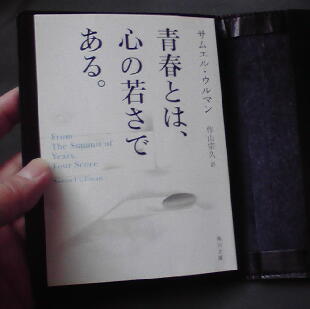 サムエル・ウルマン
青春とは、
心の若さで
ある。
作山宗久 訳
From
The Summit of
Years,
Four Score
Samuel Ullman
角川文庫